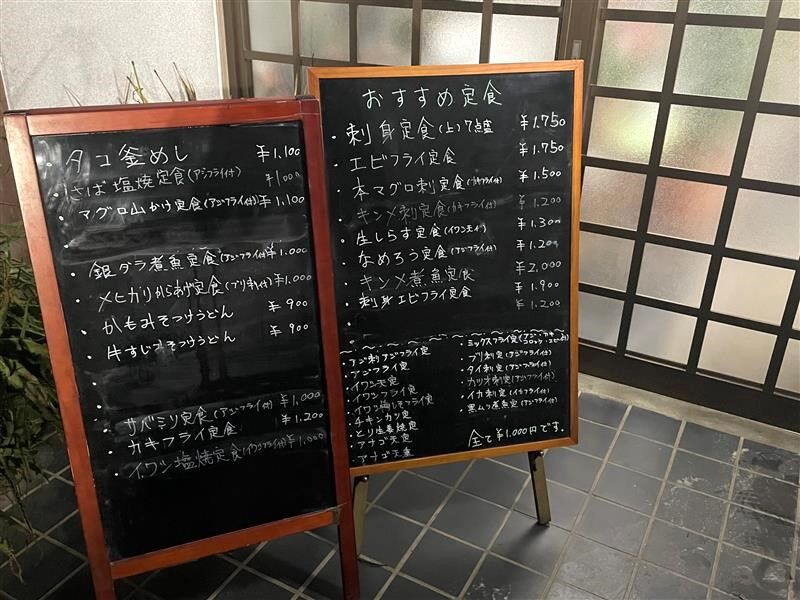 ・タコ釜めし ¥1,100
・さば塩焼定食(アジフライ付) ¥1,000
・マグロ山かけ定食(アジフライ付) ¥1,100
・銀ダラ煮魚定食(アジフライ付) ¥1,000
・メヒカリからあげ定食(ブリ刺付) ¥1,000
・かもみそつけうどん ¥900
・牛すじみそつけうどん ¥900
・サバミリン定食(アジフライ付) ¥1,000
・カキフライ定食 ¥1,200
・イワシ塩焼定食(イカフライ付) ¥1,000
おすすめ定食
・刺身定食(上)7点盛 ¥1,750
・エビフライ定食 ¥1,750
・本マグロ刺定食(カキフライ付) ¥1,500
・キンメ刺定食(カキフライ付) ¥1,200
・生しらす定食 ¥1,300
・なめろう定食(アジフライ付) ¥1,200
・キンメ煮魚定食 ¥2,000
・刺身エビフライ定食 ¥1,900
¥1,200
・アジ刺アジフライ定
・アジフライ定
・イワシ天定
・イワシフライ定
・イワシ梅しそフライ定
・チキンカツ定
・とり生姜焼定
・アナゴ天定
・アナゴ天重
・ミックスフライ定(アジ・カキ・コロッケ・エビ付)
・ブリ刺定(アジフライ付)
・タイ刺定(アジフライ付)
・カツオ刺定(アジフライ付)
・イカ刺定(イカフライ付)
・黒ムツ煮魚定(アジフライ付)
全て¥1,000円です。